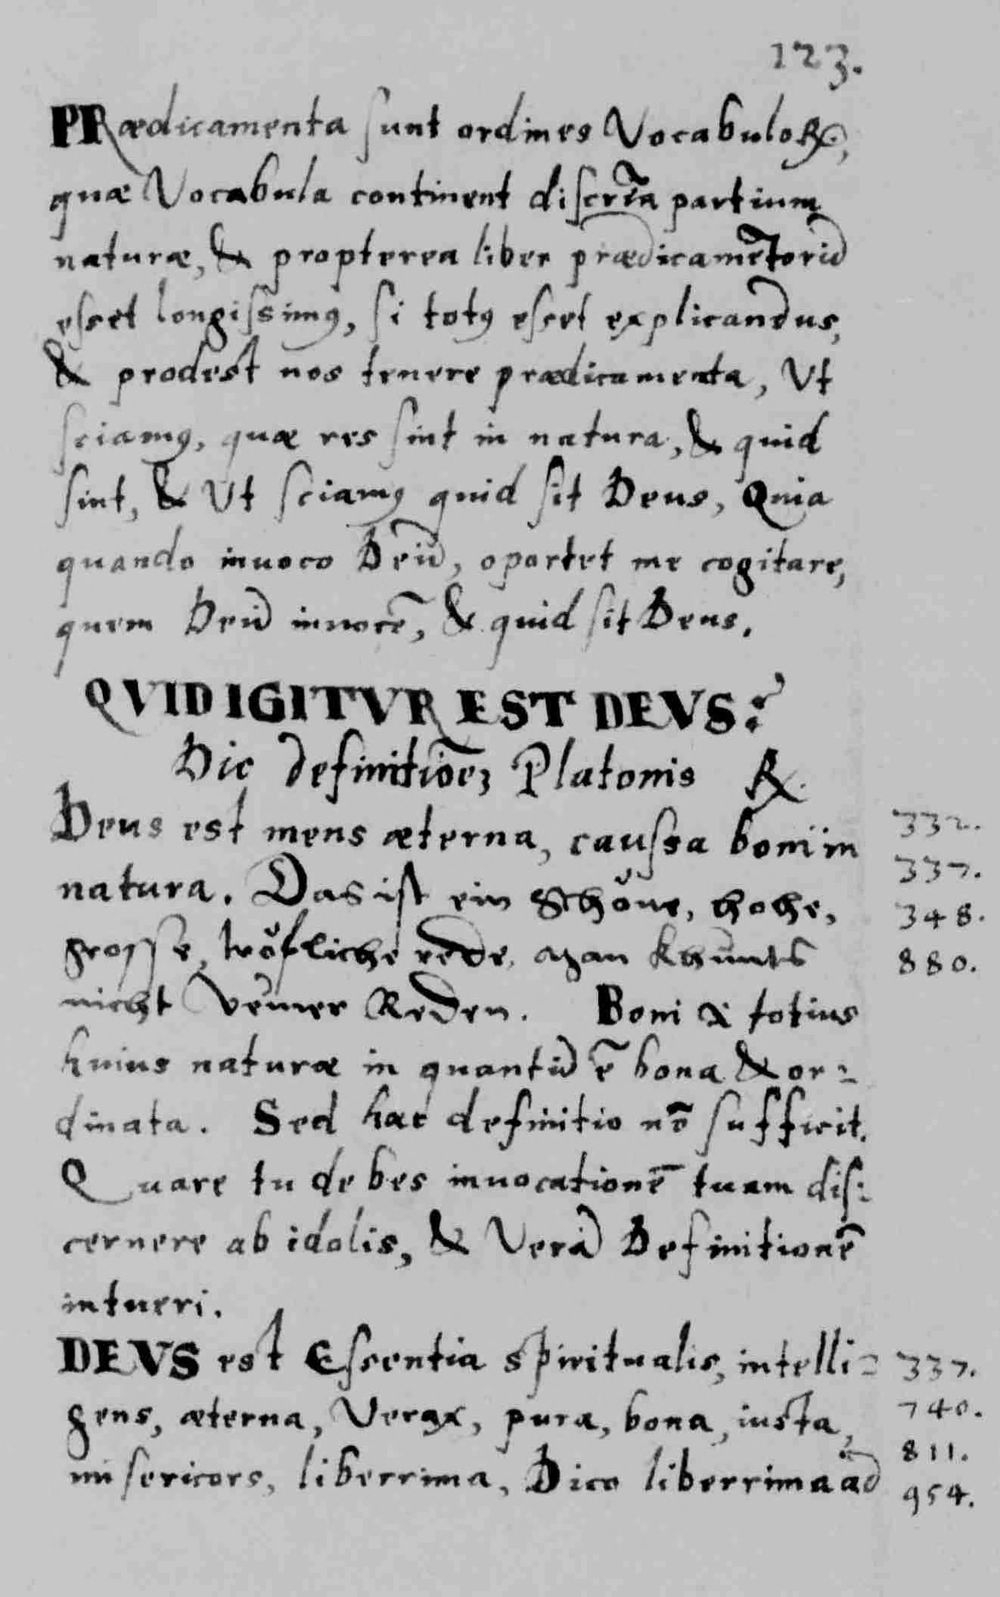 123.
PRædicamenta sunt ordines Vocabuloꝝ,
quæ Vocabula continent discrīa partium
naturæ, & propterea liber prædicamētorū
esset longissimꝰ, si totꝰ esset explicandus,
& prodest nos tenere prædicamenta, Ut
sciamꝰ, quæ res sint in natura, & quid
sint, & Ut sciamꝰ quid sit Deus, Quia
quando inuoco Deū, oportet me cogitare,
quem Deū inuocē, & quid sit Deus.
QVID IGITVR EST DEVS?
Dic definitiōeꝫ Platonis ℞.
Deus est mens æterna, caussa boni in
natura. Das ist ein schöne, hohe,
grosse, tröfliche rede, man khünts
nicht Reden. Boni i totius
huius naturæ in quantū ē bona & or:
dinata. Sed hæc definitio nō sufficit.
Quare tu debes inuocationē tuam dis:
cernere ab idolis, & Verā Definitionē
intueri.
DEVS est Essentia spiritualis, intelli:
gens, æterna, Verax, pura, bona, iusta,
misericors, liberrima, Dico liberrima ad
332.
337.
348.
880.
337.
740.
811.
954.